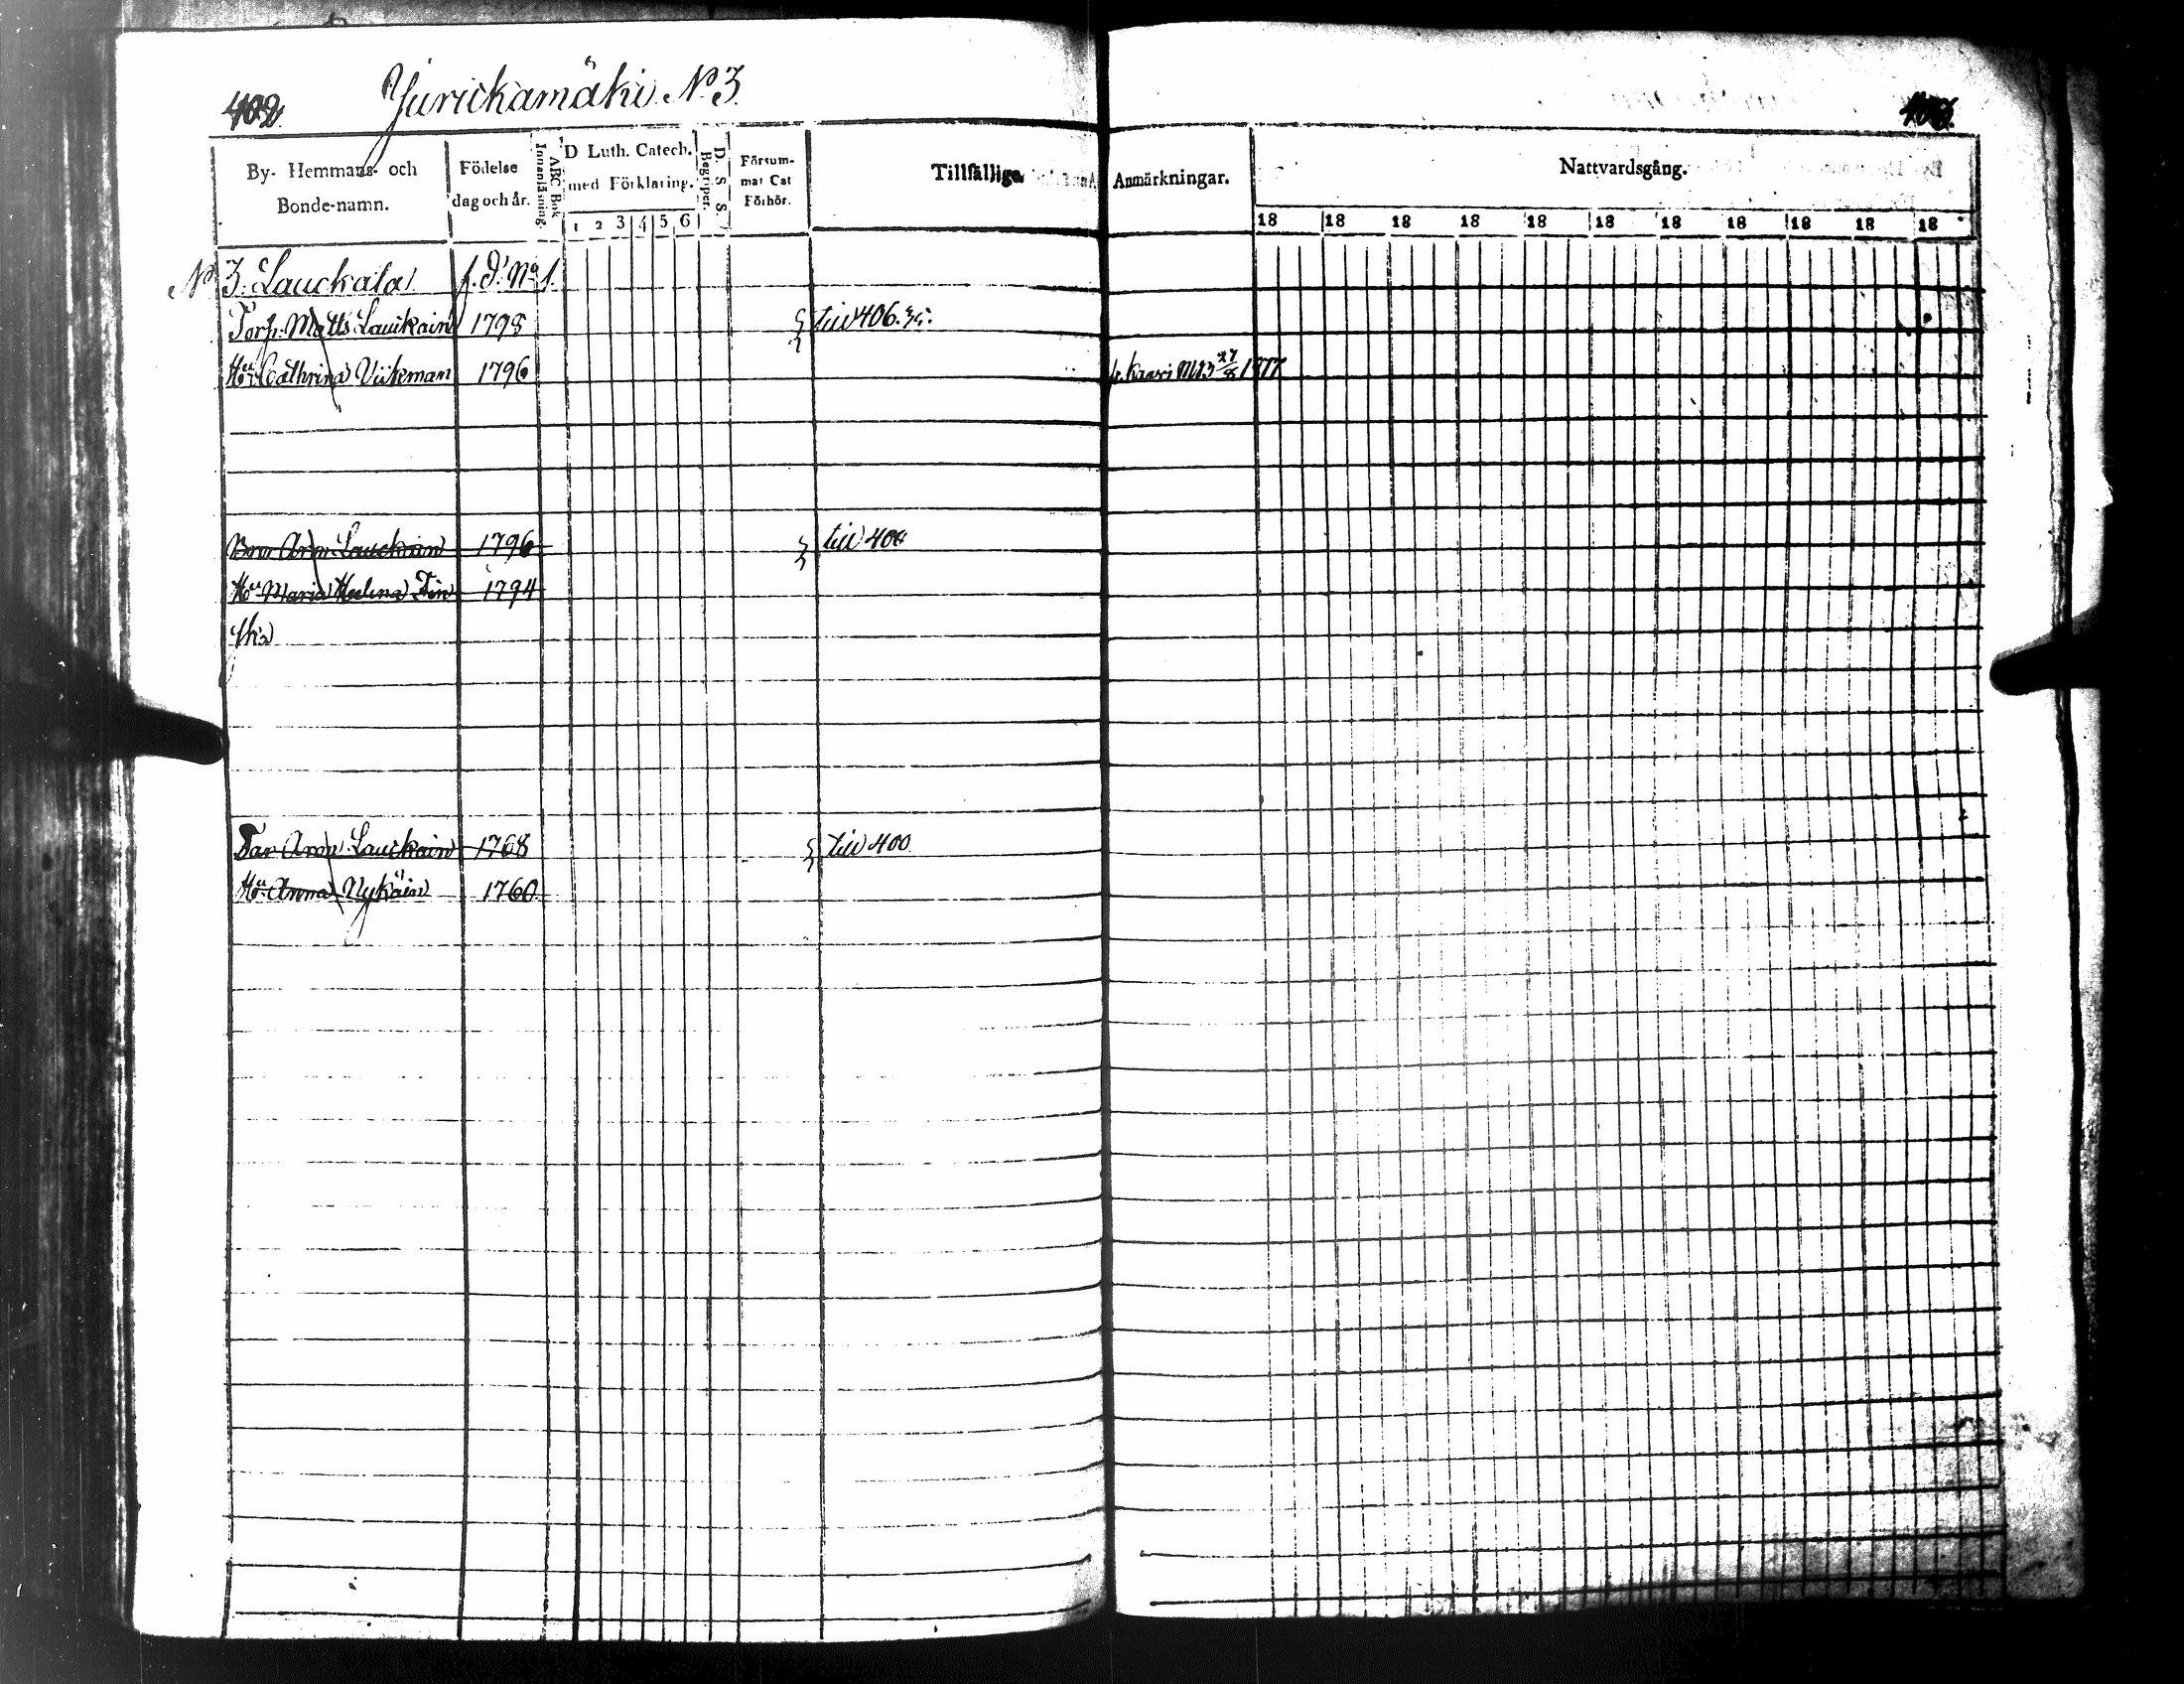 402
Jurickamäki No 3
403
By- Hemmans- och Bonde-namn.
Födelse dag och år.
ABC Bok Innanläsning.
D Luth. Catech. med Förklaring.
1 2 3 4 5 6
D. S. S. Begriper.
Försum- mat Cat Förhör.
Tillfällige
Anmärkningar.
Nattvardsgång.
18 18 18 18 18 18 18 18 18 18 18
No 3. Lauckala f. d. No 1.
Torp. Matts Lauckain 1798 till 406.
Hu Cathrina Vikman 1796 1877
Aron Lauckain 1796 till 400
Hu Maria Helena 1794
Far Aron Lauckain 1768 till 400
Hu Anna Nykäin 1760